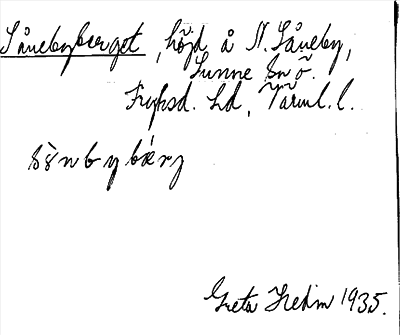 Sånebyberget, höjd å N. Såneby,
Sunne sn ö.
Fryksd. hd, Värml. l.
sò̀nbybærj
Greta Hedin 1935.